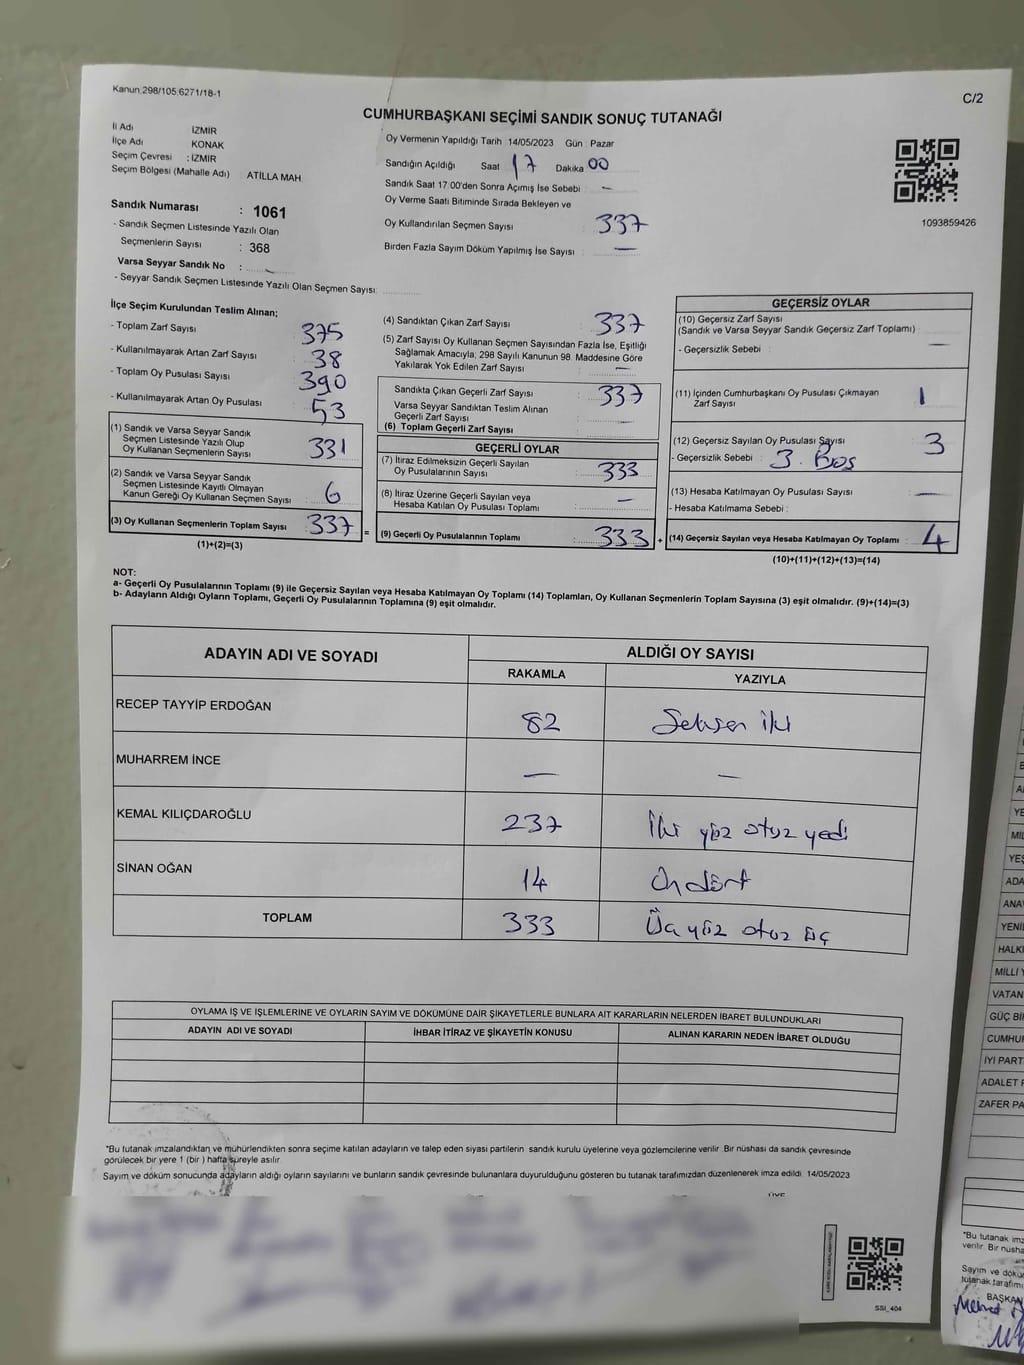 Kanun:298/105,6271/18-1
C/2
CUMHURBAŞKANI SEÇİMİ SANDIK SONUÇ TUTANAĞI
İl Adı İZMİR
İlçe Adı KONAK
Seçim Çevresi : İZMİR
Seçim Bölgesi (Mahalle Adı) : ATİLLA MAH.
Sandık Numarası : 1061
- Sandık Seçmen Listesinde Yazılı Olan
Seçmenlerin Sayısı : 368
Varsa Seyyar Sandık No :
- Seyyar Sandık Seçmen Listesinde Yazılı Olan Seçmen Sayısı:
Oy Vermenin Yapıldığı Tarih 14/05/2023 Gün : Pazar
Sandığın Açıldığı Saat 17 Dakika 00
Sandık Saat 17:00'den Sonra Açımış İse Sebebi : –
Oy Verme Saati Bitiminde Sırada Bekleyen ve
Oy Kullandırılan Seçmen Sayısı : 337
Birden Fazla Sayım Döküm Yapılmış İse Sayısı : —
1093859426
İlçe Seçim Kurulundan Teslim Alınan;
- Toplam Zarf Sayısı 375
- Kullanılmayarak Artan Zarf Sayısı 38
- Toplam Oy Pusulası Sayısı 390
- Kullanılmayarak Artan Oy Pusulası 53
(1) Sandık ve Varsa Seyyar Sandık
Seçmen Listesinde Yazılı Olup
Oy Kullanan Seçmenlerin Sayısı 331
(2) Sandık ve Varsa Seyyar Sandık
Seçmen Listesinde Kayıtlı Olmayan
Kanun Gereği Oy Kullanan Seçmen Sayısı 6
(3) Oy Kullanan Seçmenlerin Toplam Sayısı 337
(1)+(2)=(3)
=
(4) Sandıktan Çıkan Zarf Sayısı : 337
(5) Zarf Sayısı Oy Kullanan Seçmen Sayısından Fazla İse, Eşitliği
Sağlamak Amacıyla; 298 Sayılı Kanunun 98. Maddesine Göre
Yakılarak Yok Edilen Zarf Sayısı : —
Sandıkta Çıkan Geçerli Zarf Sayısı : 337
Varsa Seyyar Sandıktan Teslim Alınan
Geçerli Zarf Sayısı : —
(6) Toplam Geçerli Zarf Sayısı :
GEÇERLİ OYLAR
(7) İtiraz Edilmeksizin Geçerli Sayılan
Oy Pusulalarının Sayısı : 333
(8) İtiraz Üzerine Geçerli Sayılan veya
Hesaba Katılan Oy Pusulası Toplamı : —
(9) Geçerli Oy Pusulalarının Toplamı : 333
+
GEÇERSİZ OYLAR
(10) Geçersiz Zarf Sayısı
(Sandık ve Varsa Seyyar Sandık Geçersiz Zarf Toplamı) :
- Geçersizlik Sebebi : —
(11) İçinden Cumhurbaşkanı Oy Pusulası Çıkmayan
Zarf Sayısı : 1
(12) Geçersiz Sayılan Oy Pusulası Sayısı : 3
- Geçersizlik Sebebi : 3. Boş
(13) Hesaba Katılmayan Oy Pusulası Sayısı : —
- Hesaba Katılmama Sebebi :
(14) Geçersiz Sayılan veya Hesaba Katılmayan Oy Toplamı : 4
(10)+(11)+(12)+(13)=(14)
NOT:
a- Geçerli Oy Pusulalarının Toplamı (9) ile Geçersiz Sayılan veya Hesaba Katılmayan Oy Toplamı (14) Toplamları, Oy Kullanan Seçmenlerin Toplam Sayısına (3) eşit olmalıdır. (9)+(14)=(3)
b- Adayların Aldığı Oyların Toplamı, Geçerli Oy Pusulalarının Toplamına (9) eşit olmalıdır.
ADAYIN ADI VE SOYADI
ALDIĞI OY SAYISI
RAKAMLA YAZIYLA
RECEP TAYYİP ERDOĞAN 82 Seksen iki
MUHARREM İNCE — —
KEMAL KILIÇDAROĞLU 237 İki yüz otuz yedi
SİNAN OĞAN 14 On dört
TOPLAM 333 Üç yüz otuz üç
OYLAMA İŞ VE İŞLEMLERİNE VE OYLARIN SAYIM VE DÖKÜMÜNE DAİR ŞİKAYETLERLE BUNLARA AİT KARARLARIN NELERDEN İBARET BULUNDUKLARI
ADAYIN ADI VE SOYADI İHBAR İTİRAZ VE ŞİKAYETİN KONUSU ALINAN KARARIN NEDEN İBARET OLDUĞU
*Bu tutanak imzalandıktan ve mühürlendikten sonra seçime katılan adayların ve talep eden siyasi partilerin sandık kurulu üyelerine veya gözlemcilerine verilir. Bir nüshası da sandık çevresinde
görülecek bir yere 1 (bir ) hafta süreyle asılır.
Sayım ve döküm sonucunda adayların aldığı oyların sayılarını ve bunların sandık çevresinde bulunanlara duyurulduğunu gösteren bu tutanak tarafımızdan düzenlenerek imza edildi. 14/05/2023
ÜYE
SSI_404
YENİ
HALK
MİLLİ Y
VATAN
GÜÇ Bİ
CUMHU
İYİ PART
ADALET
ZAFER PA
*Bu tutanak imz
verilir. Bir nüsha
Sayım ve dökü
tutanak tarafımı
BAŞKAN